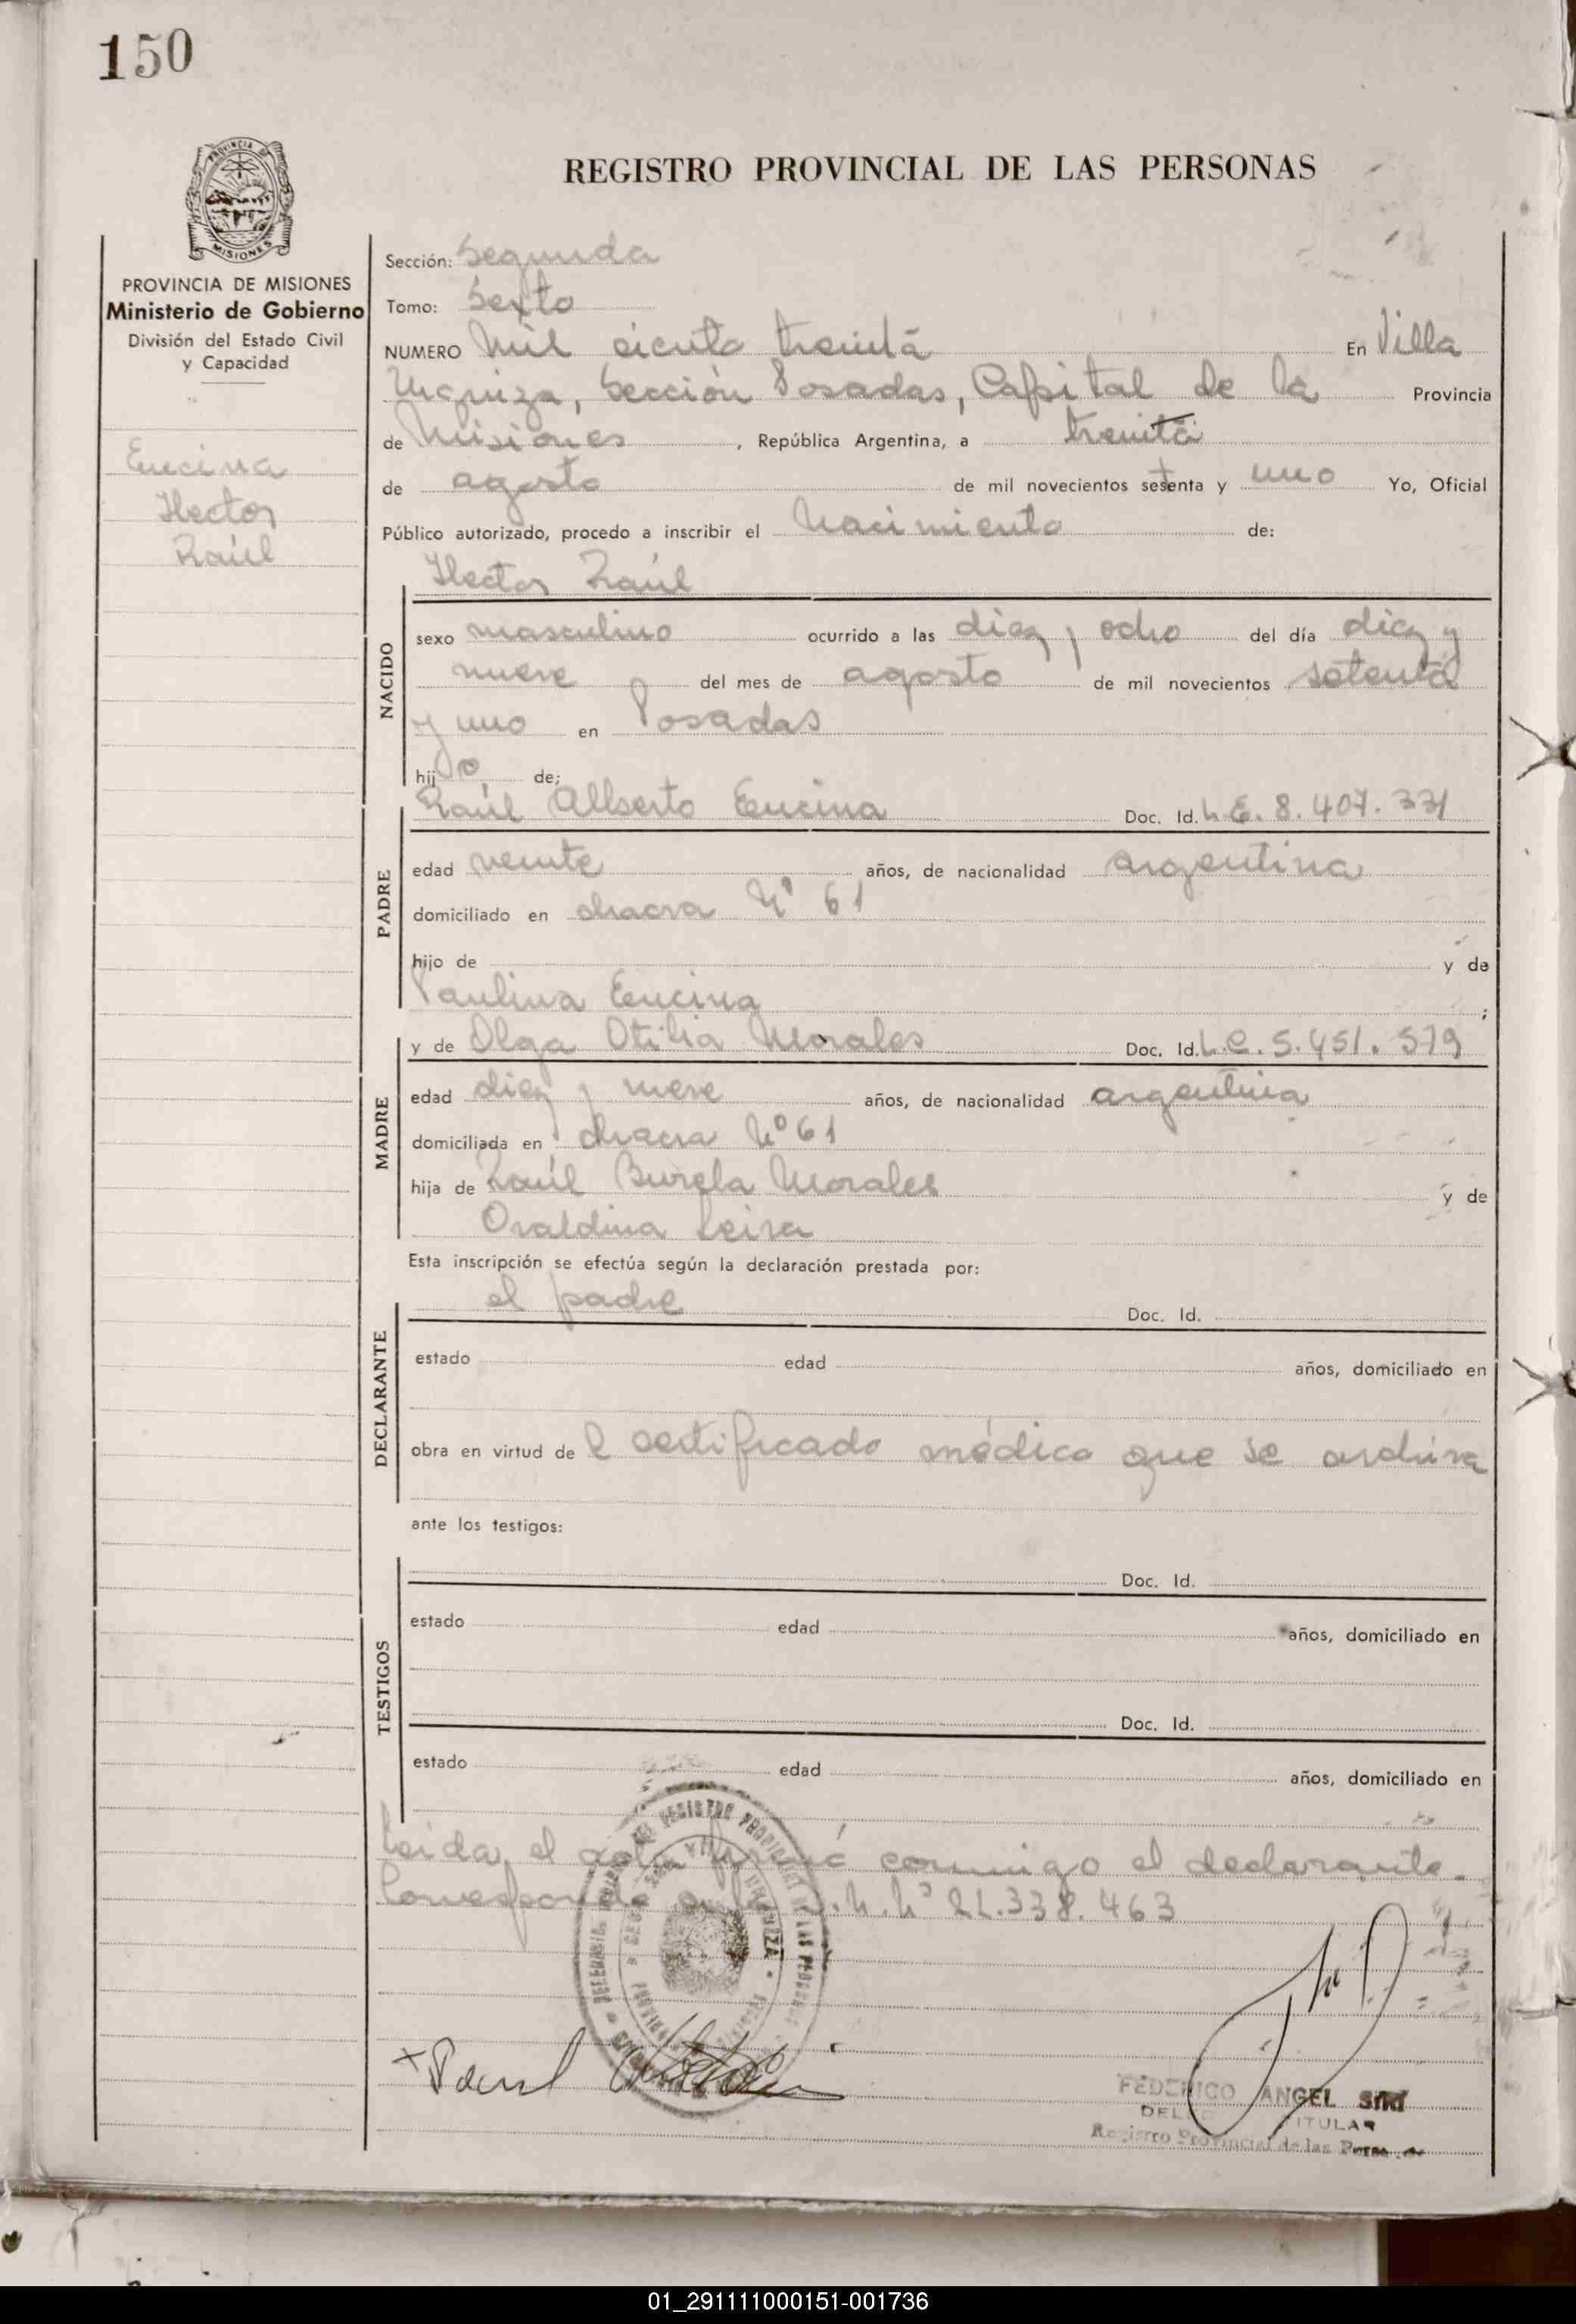 150
REGISTRO PROVINCIAL DE LAS PERSONAS
PROVINCIA DE MISIONES
Ministerio de Gobierno
División del Estado Civil
y Capacidad
Encina
Hector
Raúl
Sección: Segunda
Tomo: Sexto
NUMERO Mil ciento treinta En Villa
Urquiza, Sección Posadas, Capital de la Provincia
de Misiones, República Argentina, a treinta
de agosto de mil novecientos setenta y uno Yo, Oficial
Público autorizado, procedo a inscribir el Nacimiento de:
Hector Raúl
NACIDO
sexo masculino ocurrido a las diez y ocho del día diez y
nueve del mes de agosto de mil novecientos setenta
y uno en Posadas
hijo de;
Raúl Alberto Encina Doc. Id. L.E. 8.407.331
PADRE
edad veinte años, de nacionalidad argentina
domiciliado en chacra Nº 61
hijo de y de
Paulina Encina ;
y de Olga Otilia Morales Doc. Id. L.C. 5.451.579
MADRE
edad diez y nueve años, de nacionalidad argentina
domiciliada en chacra Nº 61
hija de Raúl Burela Morales y de
Ovaldina Leiva
Esta inscripción se efectúa según la declaración prestada por:
el padre Doc. Id.
DECLARANTE
estado edad años, domiciliado en
obra en virtud de l certificado médico que se archiva
ante los testigos:
Doc. Id.
TESTIGOS
estado edad años, domiciliado en
Doc. Id.
estado edad años, domiciliado en
Leida el acta firmá conmigo el declarante.
Corresponde .N.Nº 22.338.463
FEDERICO ANGEL
TITULAR
Registro Provincial de las
01_291111000151-001736